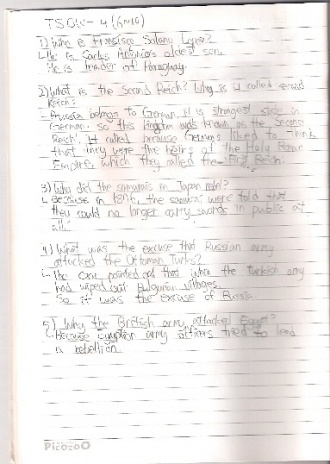 TSOW - 4 (6m10)
1) Who is Francisco Solano Lopez?
↳ He is Carlos Antonio's oldest son.
He is leader of Paraguay.
2) What is the Second Reich? Why is it called second
Reich?
- Prussia belongs to German. It is strongest state in
German. So this kingdom was known as the Second
Reich. It called because Germans liked to think
that they were the heirs of the Holy Roman
Empire, which they called the First Reich.
3) Why did the samurais in Japan rebel?
↳ Because in the samurai were told that
they could no longer carry swords in public at
all.
4) What was the excuse that Russian army
attacked the Ottoman Turks?
↳ the czar pointed out that when the turkish army
had wiped out Bulgarian villages.
So it was the excuse of Russia.
5) Why the British army attacked Egypt?
↳ Because egyption army officers tried to lead
a rebellion.
PicozoO